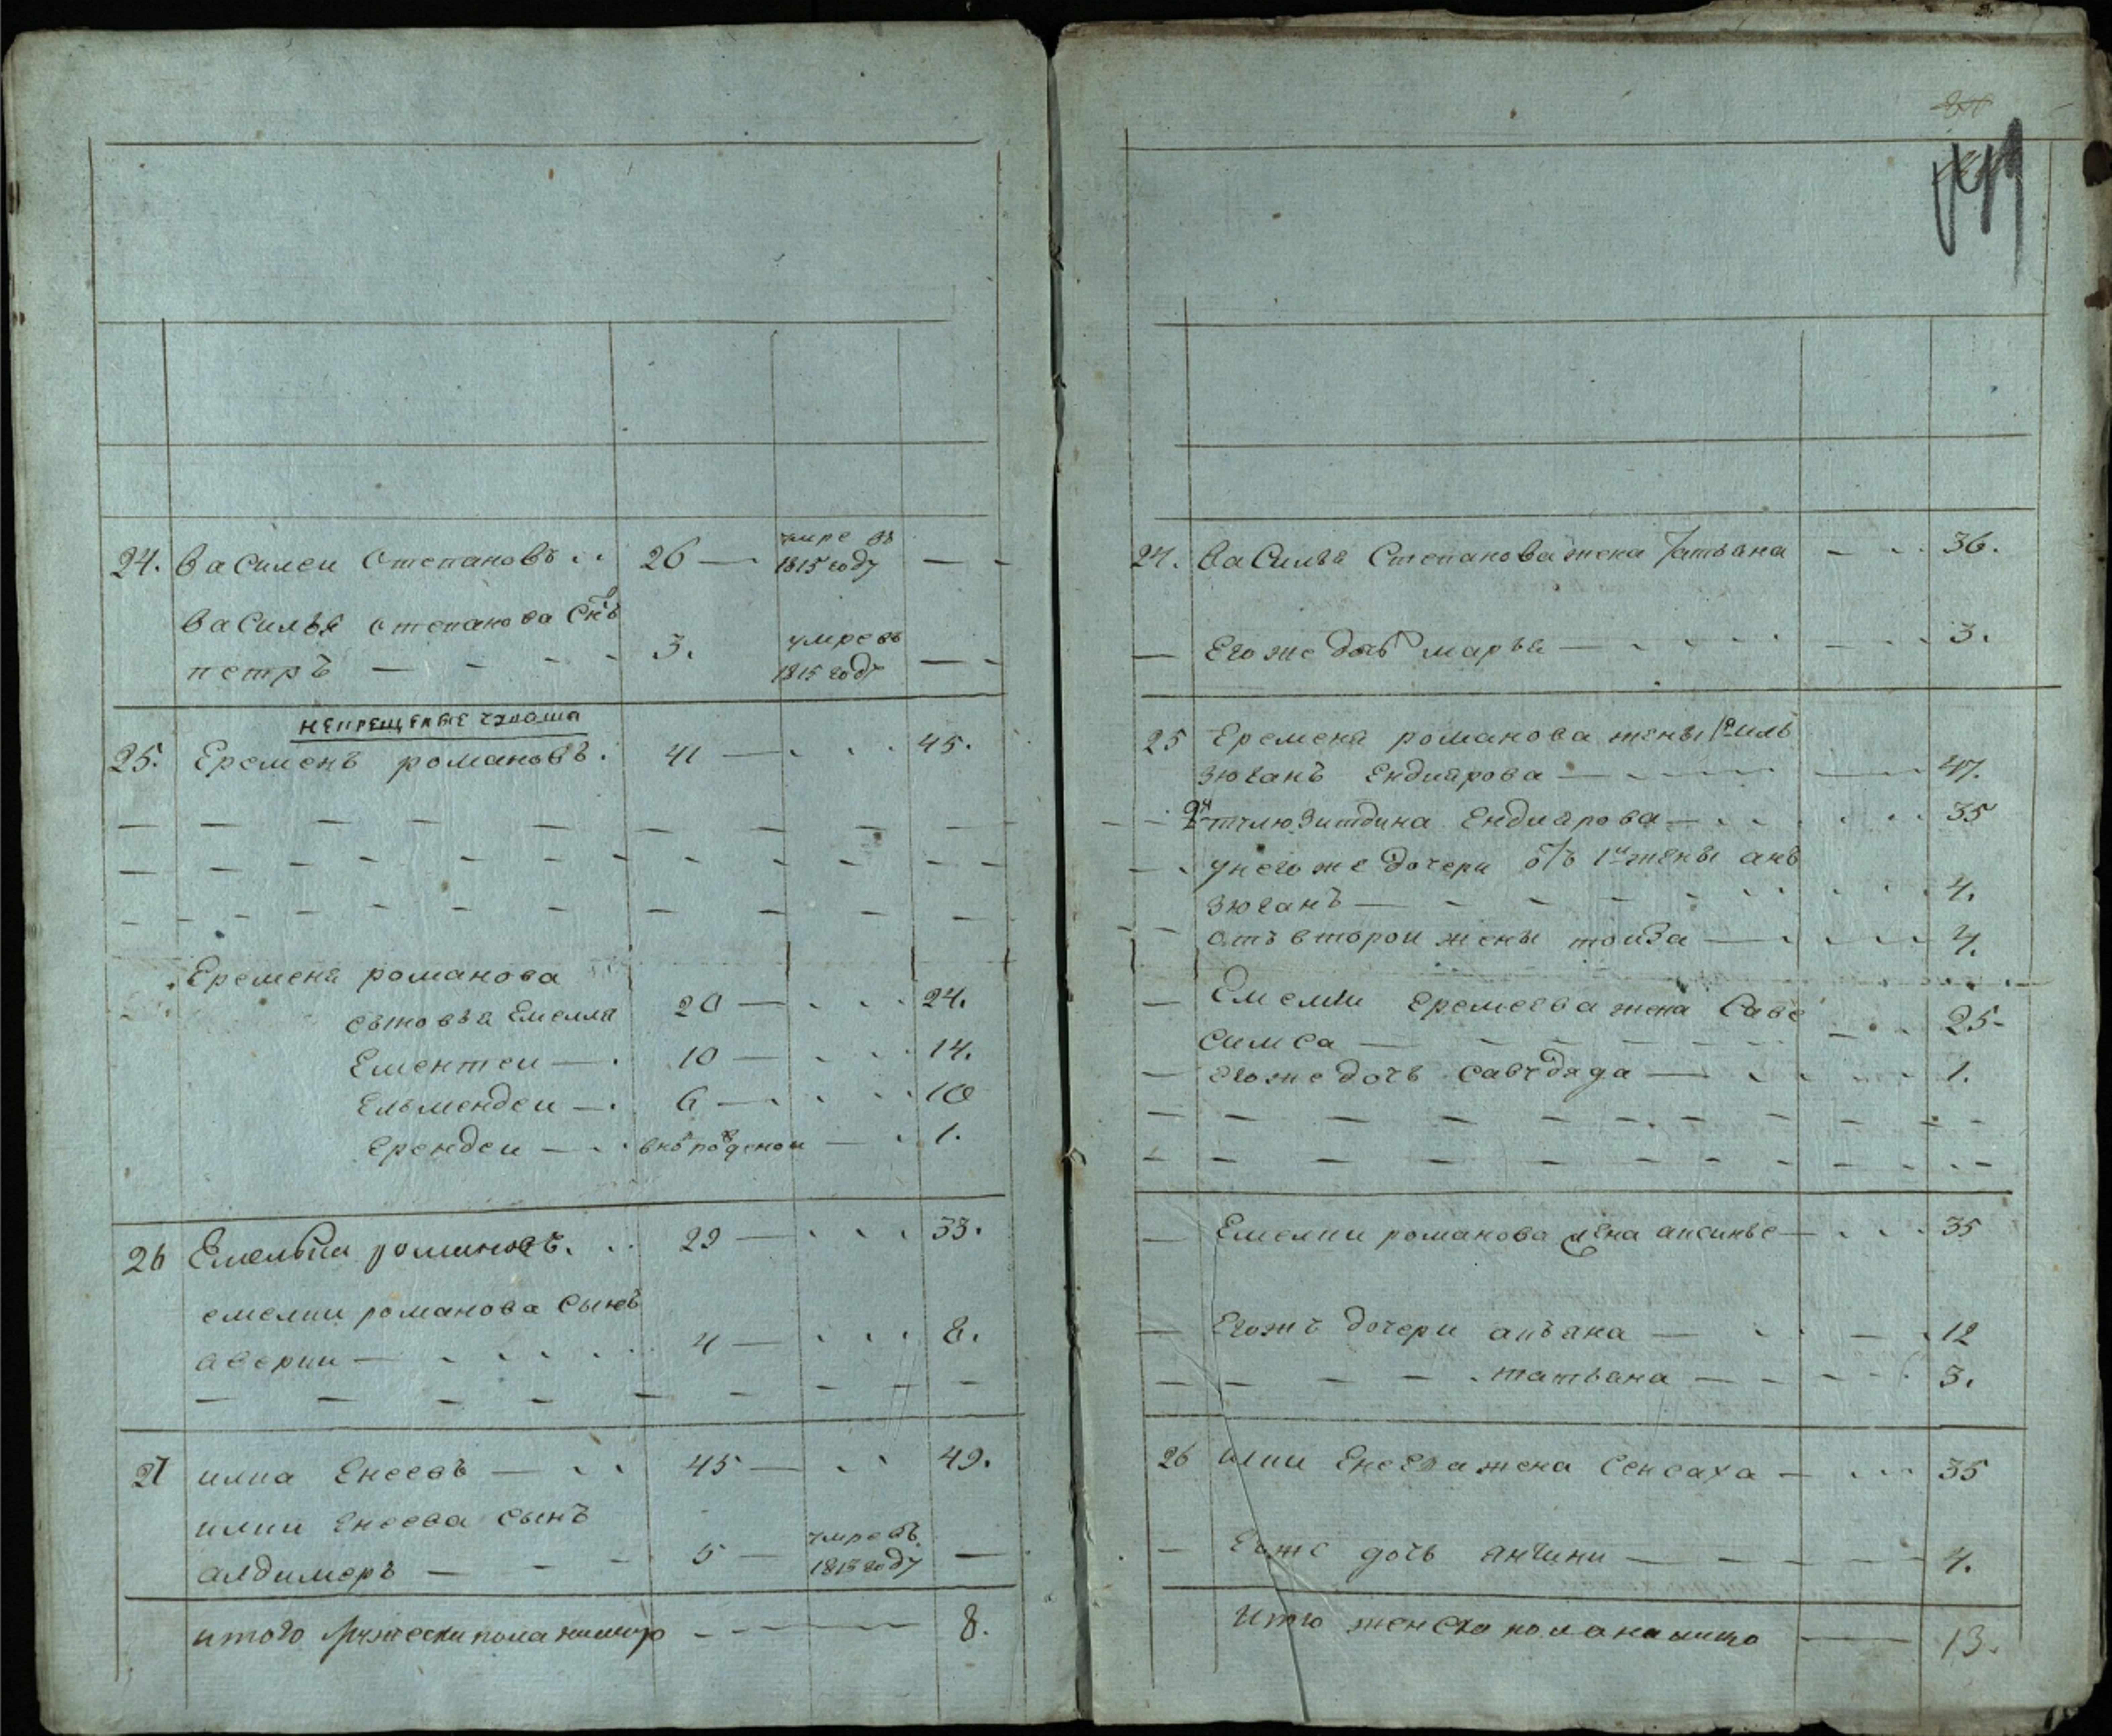 24. Василеи Степановъ 26 умре въ
1815 году
Василья Степанова Снъ
петръ 3. умре въ
1815 году
некрещеные чуваша
25. Еременъ романовъ. 41 45.
Еременя романова
сыновья Емелля 20 24.
Ементеи 10 14.
Ельмендеи 6 10
Ерендеи 1.
26 Емельян романовъ. 29 33.
емелии романова сынъ
аверии 4 8.
27 илиа Енеевъ 45 49.
илии Енеева сынъ
алдимеръ 5 умре въ
1815 году
итого мужеска пола налицо 8.
24. Василья Степанова жена Татьяна 36.
Его же дочь марья 3.
25 Еременя романова жены 1я иль
зюганъ Ендиярова 47.
2я Ендиярова 35
у него же дочери отъ 1й жены анъ
зюганъ 4.
отъ второи жены тоиза 4.
Емелии Еремеева жена Саве
симса 25.
его же дочь 1.
Емелии романова жена аксинье 35
Его же дочери 12
татьяна 3.
26 илии Енеева жена Сенсаха 35
Его же дочь анчини 4.
Итого женска пола налицо 13.